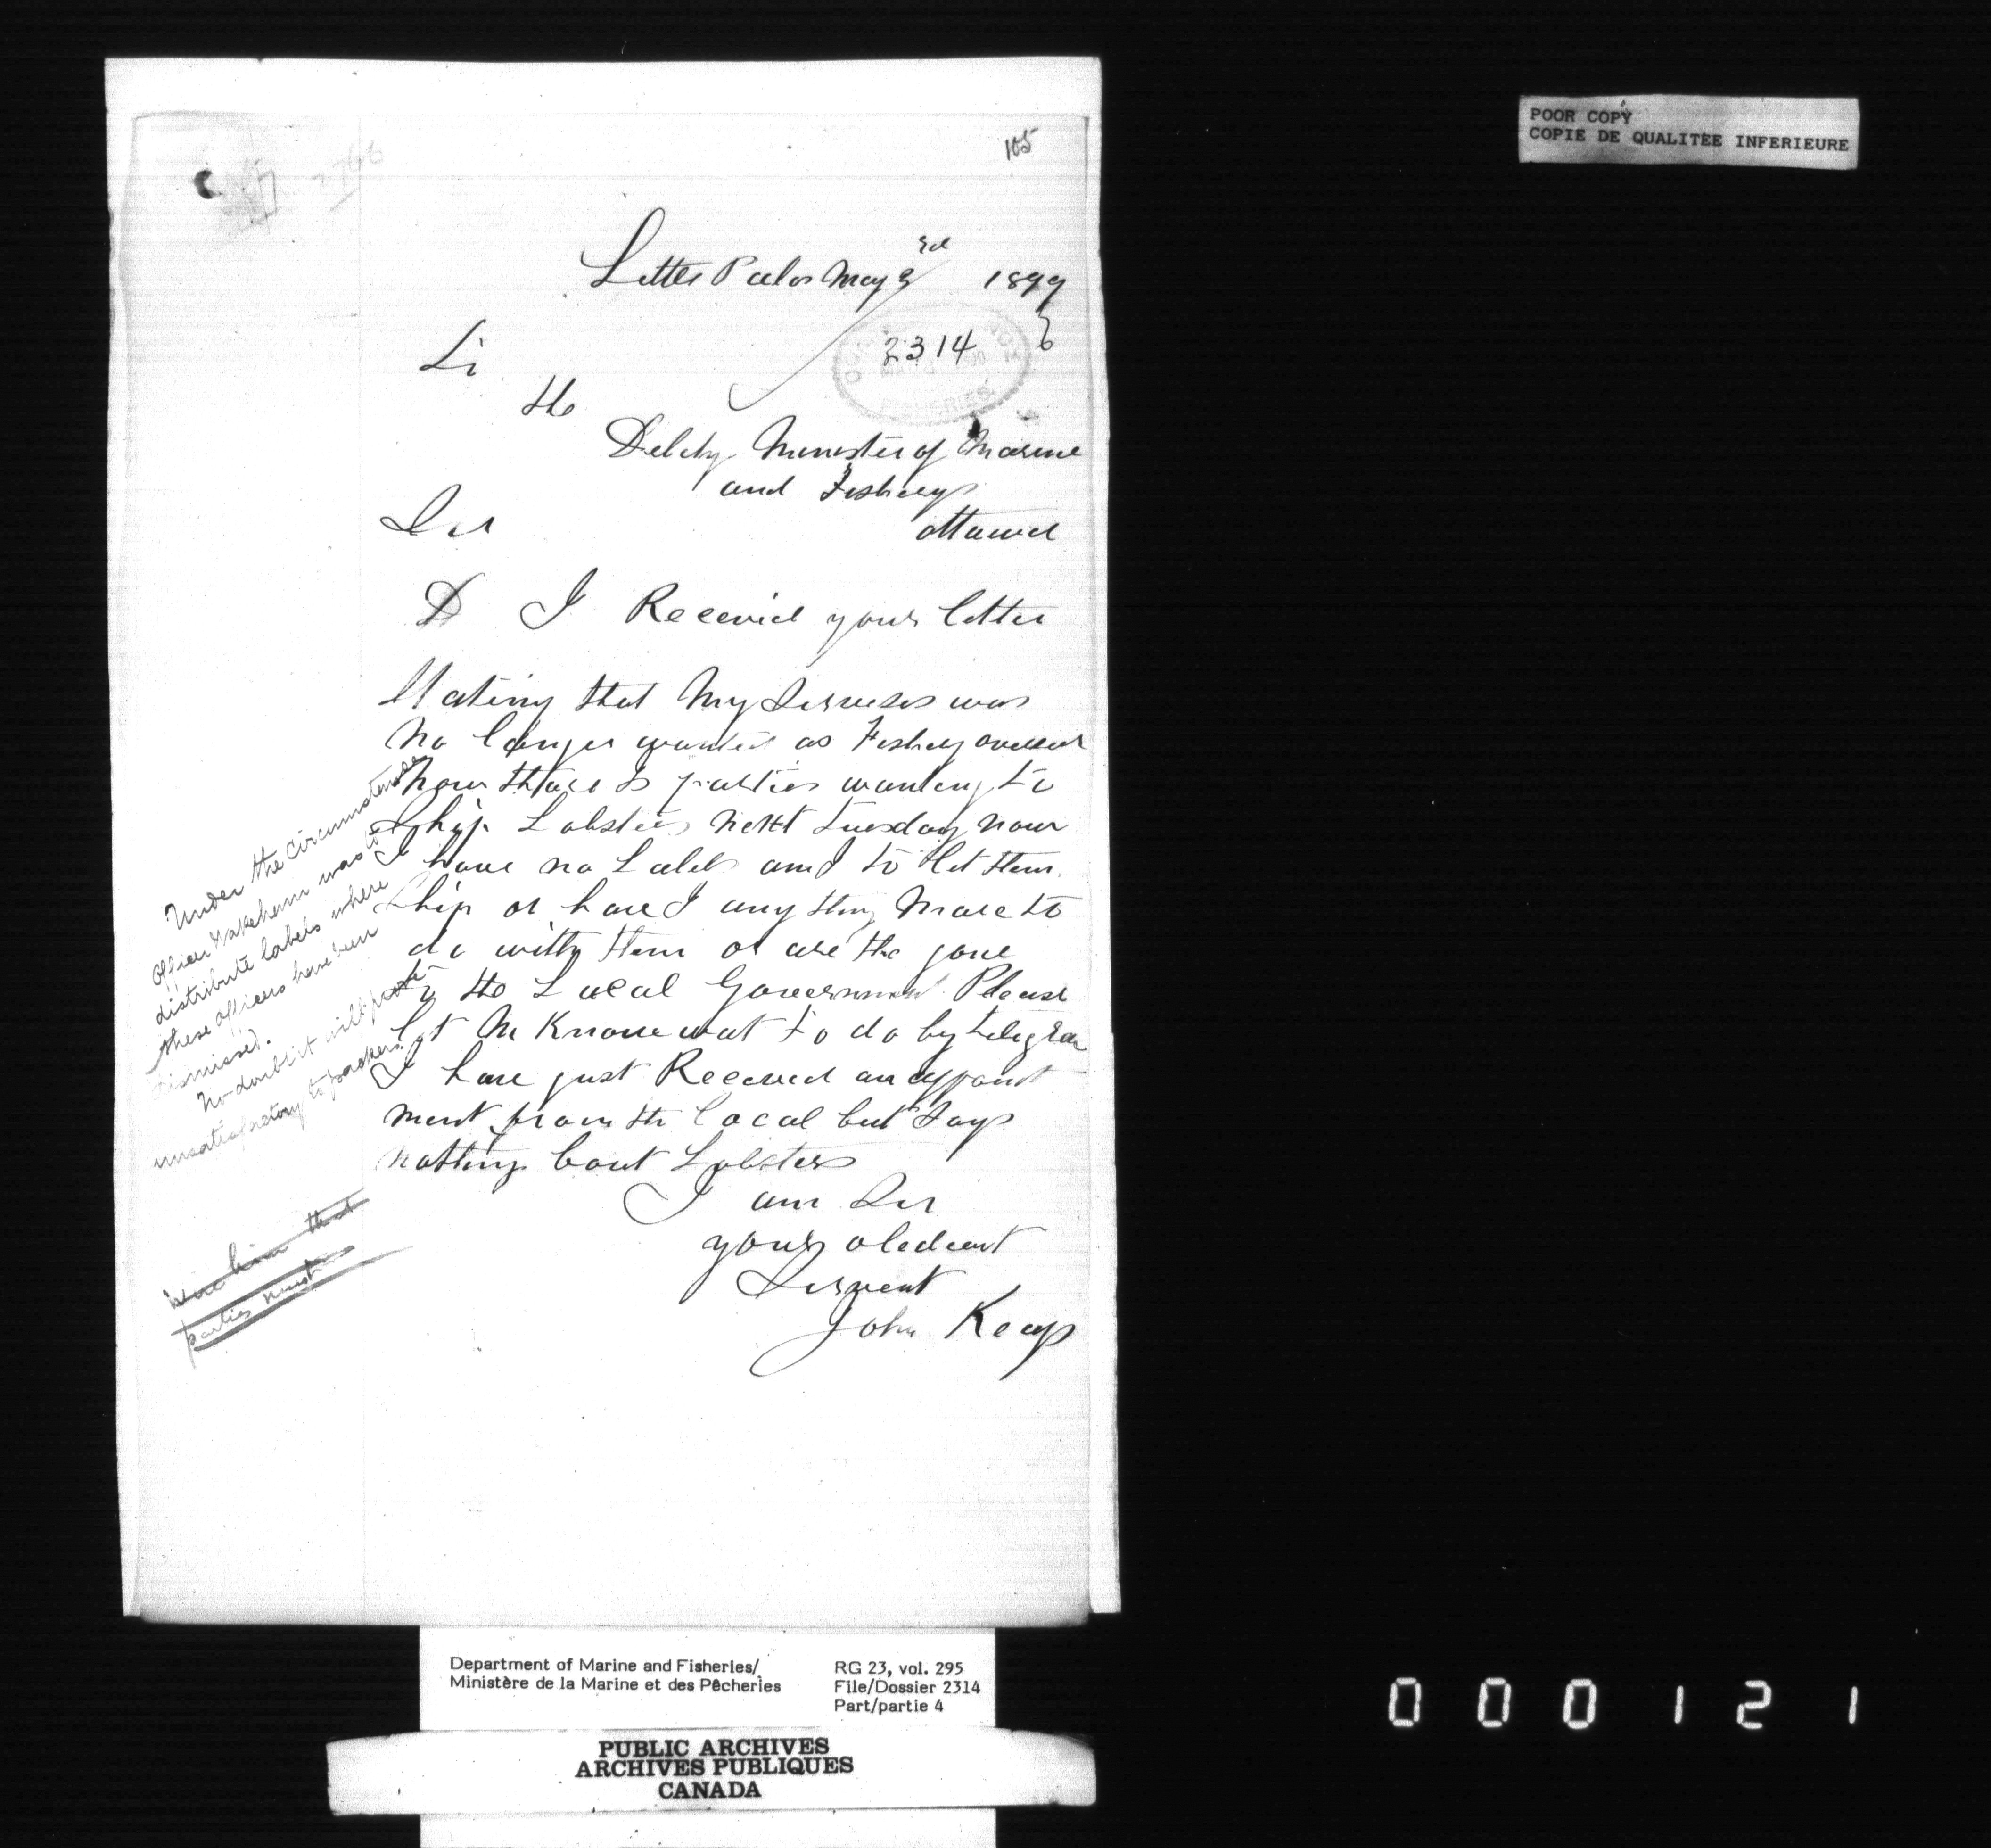 POOR COPY
COPIE DE QUALITEE INFERIEURE
105
Little Pabos May 3rd 1899
To
the
2314
FISHERIES.
Debety Minister of Marine
and Fishery
ottawa
Sir
D I Received your letter
Stating that My Servises was
No longer wanted as Fishery overseer
Now thare is parties wanting to
Ship Lobsters Next Tuesday Now
I have no Labels am I to let them
Ship or have I any thing More to
do with them or are the gone
to the Local Government Please
let Me Know wat to do by telegram
I have just Received an appoint
ment from the local but Says
Nothing bout Lobsters
I am Sir
your obedient
Servent
John Keays
Under the circumstances
Officer Wakeham was to
distribute labels where
these officers have been
dismissed.
No doubt it will prove
unsatisfactory to packers.
Wire him that
parties must
Department of Marine and Fisheries/
Ministère de la Marine et des Pêcheries
RG 23, vol. 295
File/Dossier 2314
Part/partie 4
PUBLIC ARCHIVES
ARCHIVES PUBLIQUES
CANADA
000121